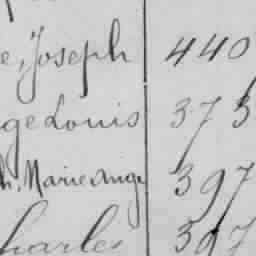 e, Joseph 440
ge Louis 373
h, Marie Ange 397
harles 397